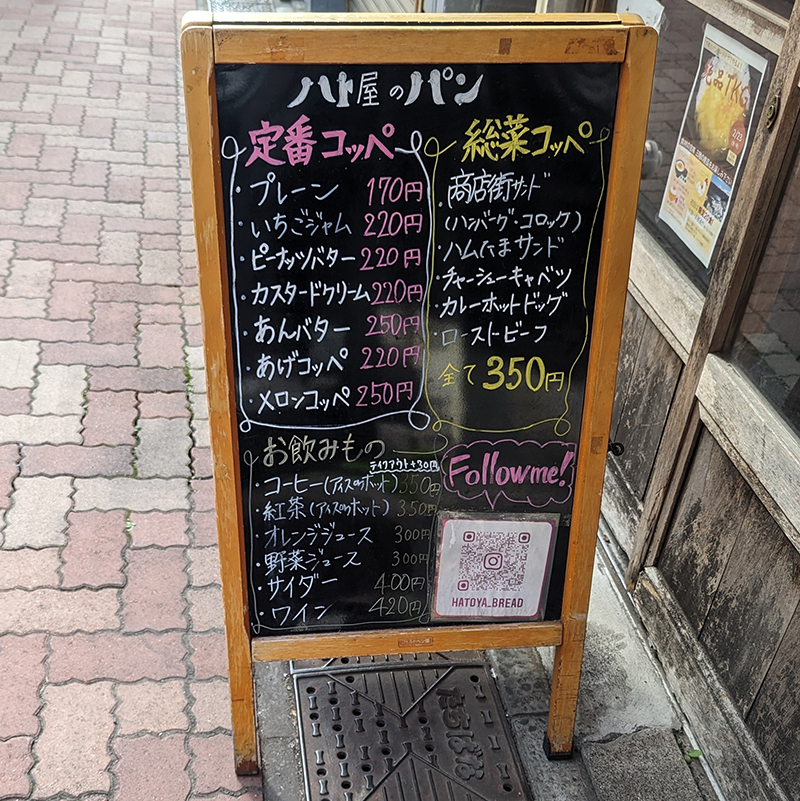 ハト屋のパン
定番コッペ
・プレーン 170円
・いちごジャム 220円
・ピーナッツバター 220円
・カスタードクリーム 220円
・あんバター 250円
・あげコッペ 220円
・メロンコッペ 250円
総菜コッペ
・商店街サンド
(ハンバーグ・コロッケ)
・ハムたまサンド
・チャーシューキャベツ
・カレーホットドッグ
・ローストビーフ
全て350円
お飲みもの
テイクアウト+30円
・コーヒー(アイスorホット) 350円
・紅茶(アイスorホット) 350円
・オレンジジュース 300円
・野菜ジュース 300円
・サイダー 400円
・ワイン 420円
Follow me!
HATOYA_BREAD
絶品TKG